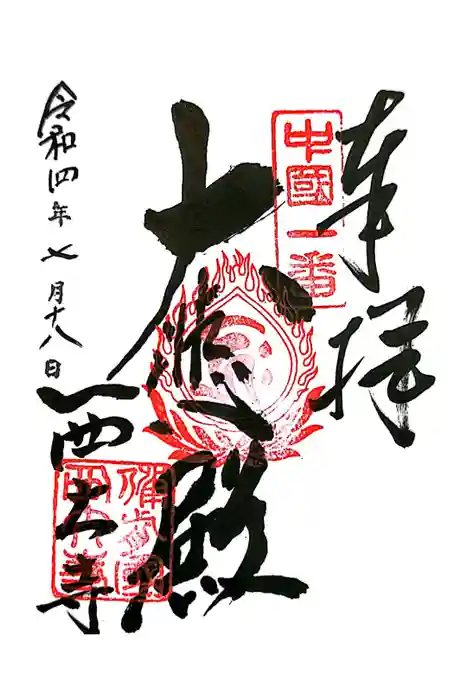 奉拝
中國一番
大悲殿
令和四年七月十八日
西大寺
備前國
西大寺